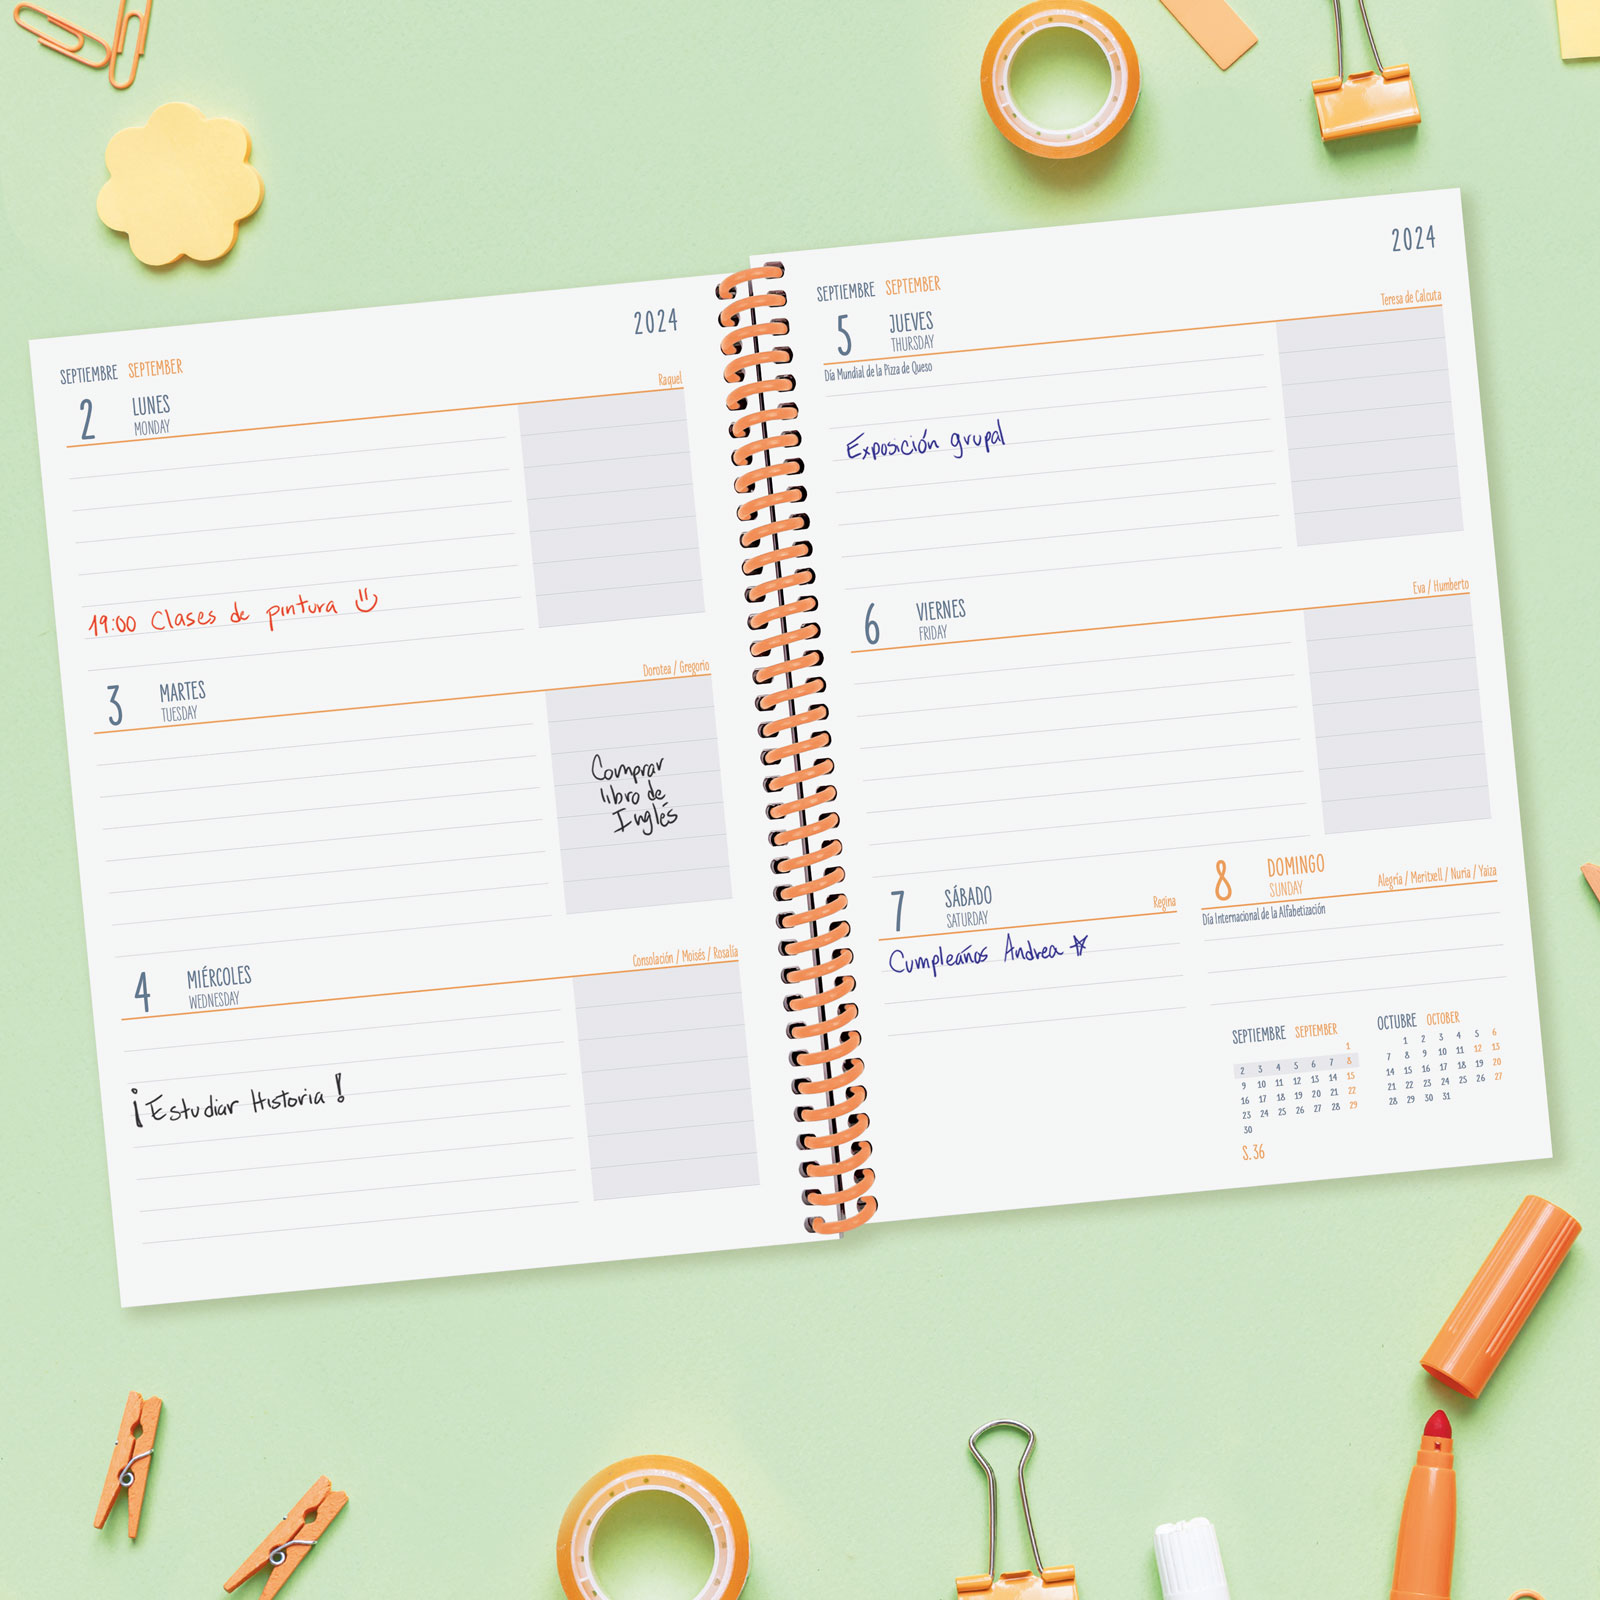 2024
SEPTIEMBRE SEPTEMBER
2 LUNES
MONDAY
Raquel
19:00 Clases de pintura
3 MARTES
TUESDAY
Dorotea / Gregorio
Comprar
libro de
Inglés
4 MIÉRCOLES
WEDNESDAY
Consolación / Moisés / Rosalía
¡Estudiar Historia!
2024
SEPTIEMBRE SEPTEMBER
5 JUEVES
THURSDAY
Teresa de Calcuta
Día Mundial de la Pizza de Queso
Exposición grupal
6 VIERNES
FRIDAY
Eva / Humberto
7 SÁBADO
SATURDAY
Regina
Cumpleaños Andrea
8 DOMINGO
SUNDAY
Alegría / Meritxell / Nuria / Yaiza
Día Internacional de la Alfabetización
SEPTIEMBRE SEPTEMBER
1
2 3 4 5 6 7 8
9 10 11 12 13 14 15
16 17 18 19 20 21 22
23 24 25 26 27 28 29
30
S. 36
OCTUBRE OCTOBER
1 2 3 4 5 6
7 8 9 10 11 12 13
14 15 16 17 18 19 20
21 22 23 24 25 26 27
28 29 30 31